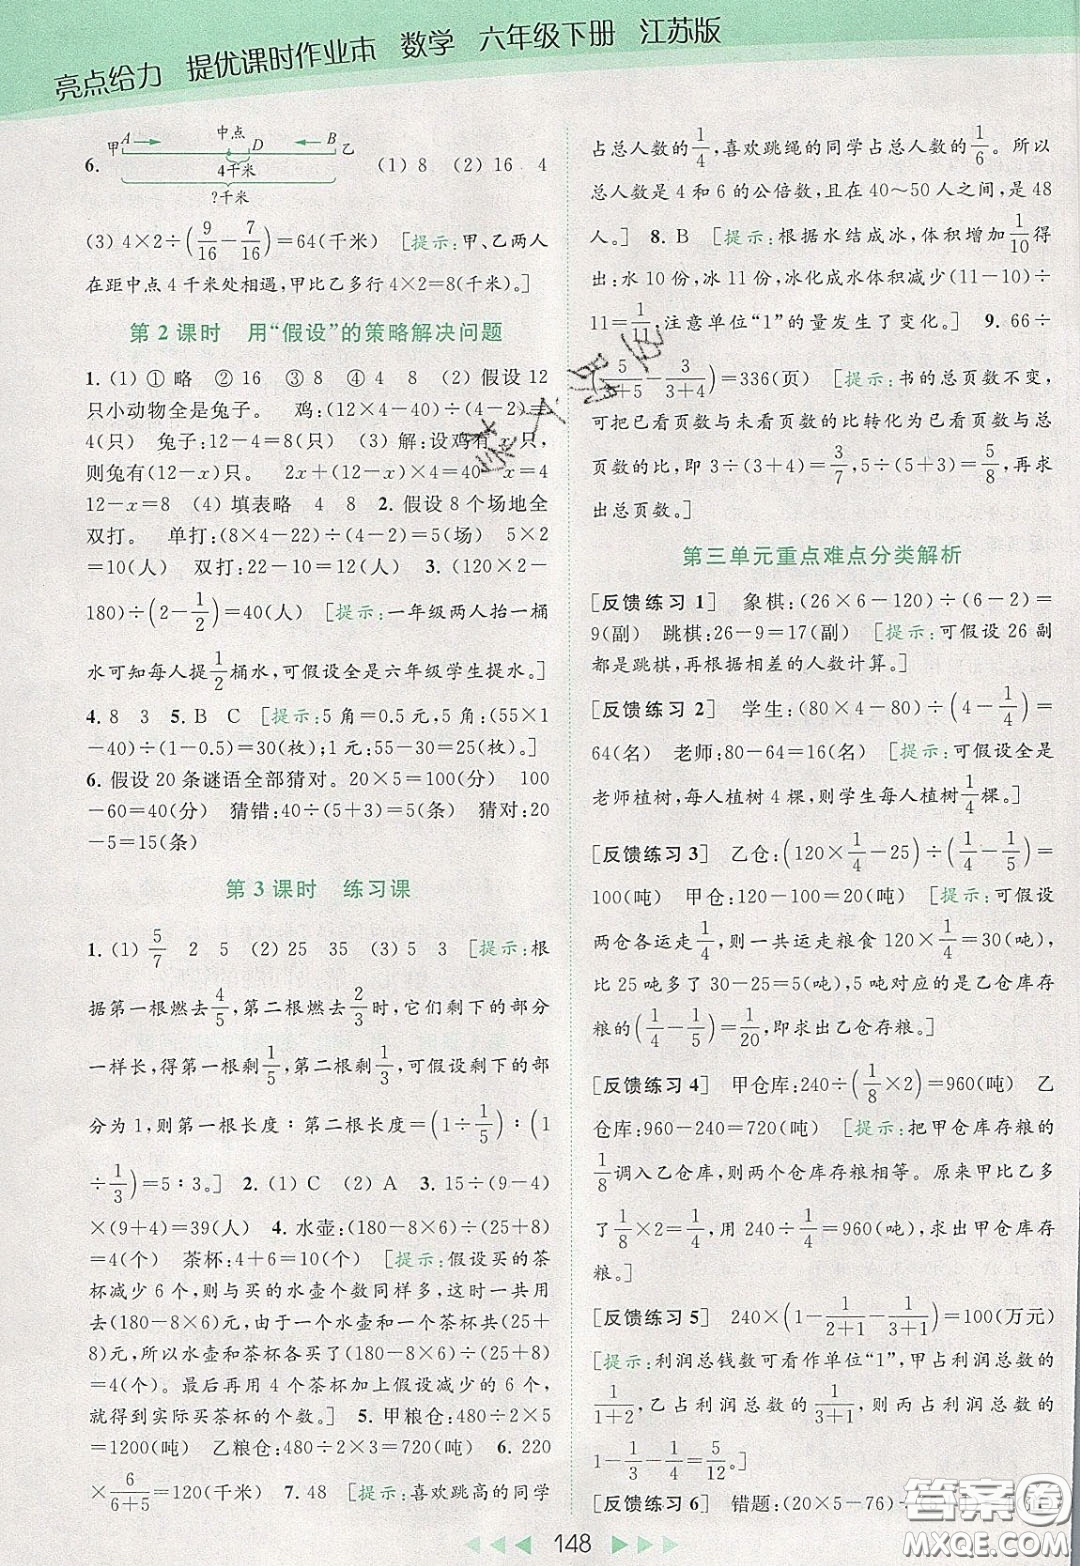 亮点给力 提优课时作业本 数学 六年级下册 江苏版
6. 甲 A 中点 D B 乙 4千米 ?千米 (1) 8 (2) 16 4
(3) 4×2÷(9/16-7/16)=64(千米) [提示:甲、乙两人
在距中点4千米处相遇,甲比乙多行4×2=8(千米)。]
第 2 课时 用“假设”的策略解决问题
1. (1) ① 略 ② 16 ③ 8 ④ 4 8 (2) 假设 12
只小动物全是兔子。 鸡:(12×4-40)÷(4-2)=
4(只) 兔子:12-4=8(只) (3) 解:设鸡有 x 只,
则兔有(12-x)只。 2x+(12-x)×4=40 x=4
12-x=8 (4) 填表略 4 8 2. 假设 8 个场地全
双打。 单打:(8×4-22)÷(4-2)=5(场) 5×2=
10(人) 双打:22-10=12(人) 3. (150×2-
180)÷(2-1/2)=40(人) [提示:一年级两人抬一桶
水可知每人提1/2桶水,可假设全是六年级学生提水。]
4. 8 3 5. B C [提示:5角=0.5元,5角:(55×1
-40)÷(1-0.5)=30(枚);1元:55-30=25(枚)。]
6. 假设 20 条谜语全部猜对。20×5=100(分) 100
-60=40(分) 猜错:40÷(5+3)=5(条) 猜对:20
-5=15(条)
第 3 课时 练习课
1. (1) 5/7 2 5 (2) 25 35 (3) 5 3 [提示:根
据第一根燃去4/5,第二根燃去2/3时,它们剩下的部分
一样长,得第一根剩1/5,第二根剩1/3,可假设剩下的部
分为1,则第一根长度∶第二根长度=(1÷1/5)∶(1
÷1/3)=5∶3。] 2. (1) C (2) A 3. 15÷(9-4)
×(9+4)=39(人) 4. 水壶:(180-8×6)÷(25+8)
=4(个) 茶杯:4+6=10(个) [提示:假设买的茶
杯减少 6 个,则与买的水壶个数同样多,这时一共用
去(180-8×6)元,由于一个水壶和一个茶杯共(25+
8)元,所以水壶和茶杯各买了(180-8×6)÷(25+8)
=4(个)。最后再用 4 个茶杯加上假设减少的 6 个,
就得到实际买茶杯的个数。] 5. 甲粮仓:480÷2×5
=1200(吨) 乙粮仓:480÷2×3=720(吨) 6. 220
×6/(6+5)=120(千米) 7. 48 [提示:喜欢跳高的同学
占总人数的1/4,喜欢跳绳的同学占总人数的1/6。所以
总人数是 4 和 6 的公倍数,且在 40～50 人之间,是 48
人。] 8. B [提示:根据水结成冰,体积增加1/10得
出:水 10 份,冰 11 份,冰化成水体积减少(11-10)÷
11=1/11,注意单位“1”的量发生了变化。] 9. 66÷
(5/(3+5)-3/(3+4))=336(页) [提示:书的总页数不变,
可把已看页数与未看页数的比转化为已看页数与总
页数的比,即 3÷(3+4)=3/7,5÷(5+3)=5/8,再求
出总页数。]
第三单元重点难点分类解析
[反馈练习 1] 象棋:(26×6-120)÷(6-2)=
9(副) 跳棋:26-9=17(副) [提示:可假设 26 副
都是跳棋,再根据相差的人数计算。]
[反馈练习 2] 学生:(80×4-80)÷(4-1/4)=
64(名) 老师:80-64=16(名) [提示:可假设全是
老师植树,每人植树 4 棵,则学生每人植树1/4棵。]
[反馈练习 3] 乙仓:(120×1/4-25)÷(1/4-1/5)=
100(吨) 甲仓:120-100=20(吨) [提示:可假设
两仓各运走1/4,则一共运走粮食 120×1/4=30(吨),
比 25 吨多了 30-25=5(吨),5 吨对应的是乙仓库存
粮的(1/4-1/5)=1/20,即求出乙仓存粮。]
[反馈练习 4] 甲仓库:240÷(1/8×2)=960(吨) 乙
仓库:960-240=720(吨) [提示:把甲仓库存粮的
1/8调入乙仓库,则两仓库存粮相等。原来甲比乙多
了1/8×2=1/4,用 240÷1/4=960(吨),求出甲仓库存
粮。]
[反馈练习 5] 240×(1-1/(2+1)-1/(3+1))=100(万元)
[提示:利润总钱数可看作单位“1”,甲占利润总数的
1/(1+2),乙占利润总数的1/(3+1),则丙占利润总数的
1-1/3-1/4=5/12。]
[反馈练习 6] 错题:(20×5-76)÷
148
答案圈
MXQE.COM